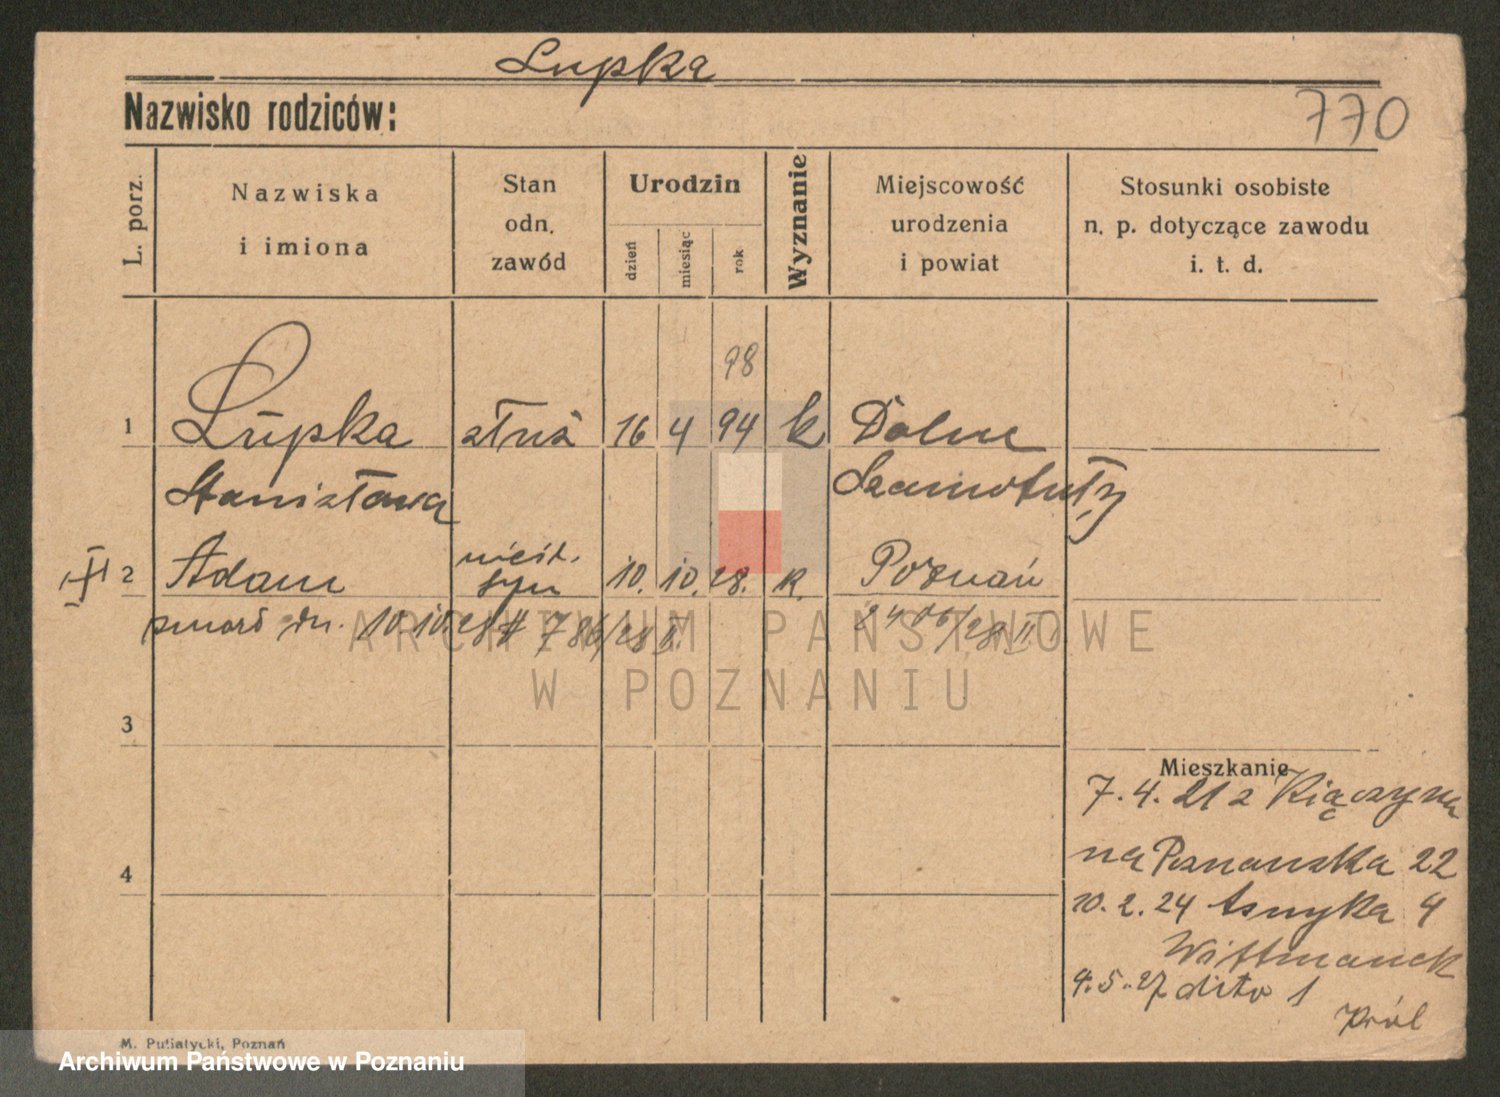 Lupka
Nazwisko rodziców:
770
L. porz.
Nazwiska
i imiona
Stan
odn.
zawód
Urodzin
dzień
miesiąc
rok
Wyznanie
Miejscowość
urodzenia
i powiat
Stosunki osobiste
n. p. dotyczące zawodu
i. t. d.
98
1 Lupka służ 16 4 94 k Dolne
Stanisława Szamotuły
2 Adam nieśl. syn 10. 10. 28. k. Poznań
zmarł dn. 10.10.28 # 786/28 II. 2406/28 II
ARCHIWUM PAŃSTWOWE
W POZNANIU
3
Mieszkanie
7. 4. 21 z Kiączyna
4
na Poznańska 22
10. 2. 24 Asnyka 4
Wittmanek
4. 5. 27 dito 1
Król
M. Putiatycki, Poznań
Archiwum Państwowe w Poznaniu